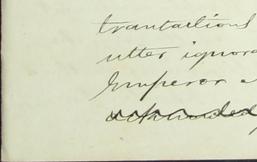 transactions
utter ignora
Emperor a